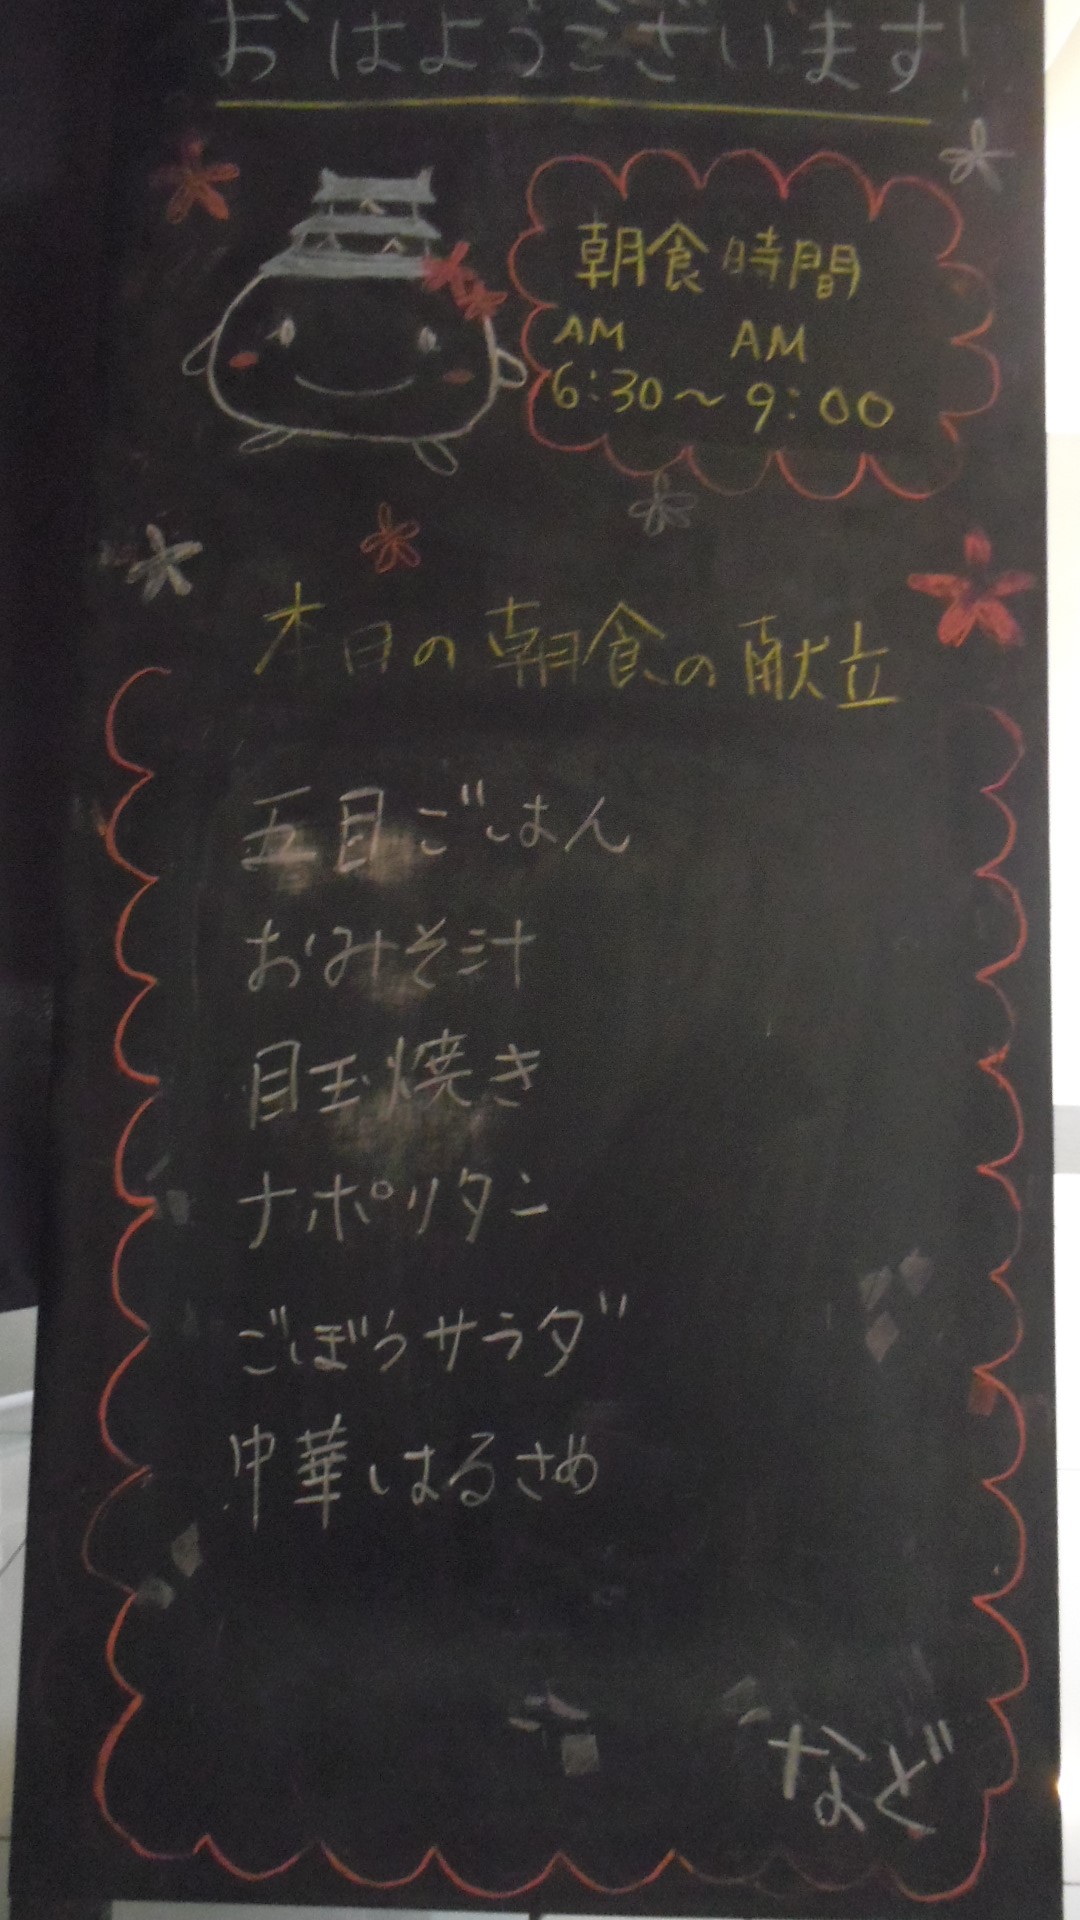 おはようございます!
朝食時間
AM AM
6:30〜9:00
本日の朝食の献立
五目ごはん
おみそ汁
目玉焼き
ナポリタン
ごぼうサラダ
中華はるさめ
など